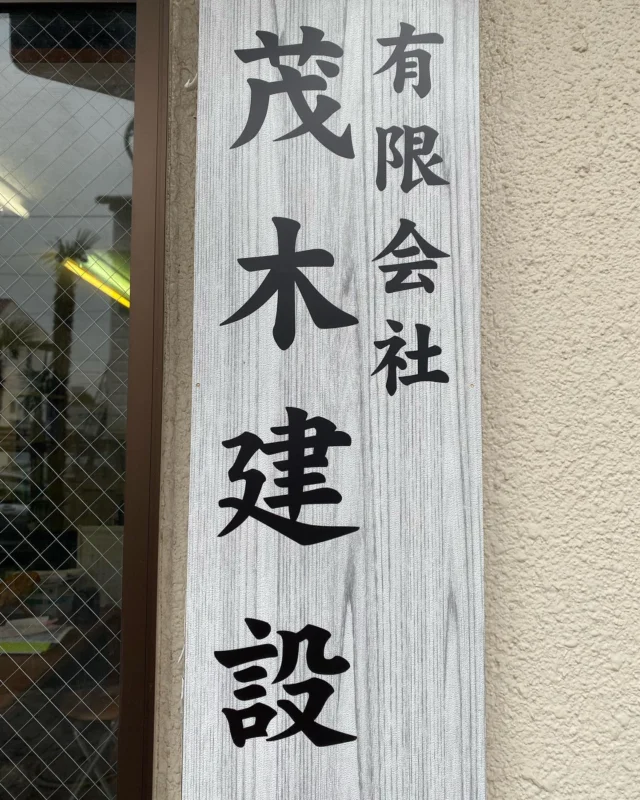 有限会社
茂木建設